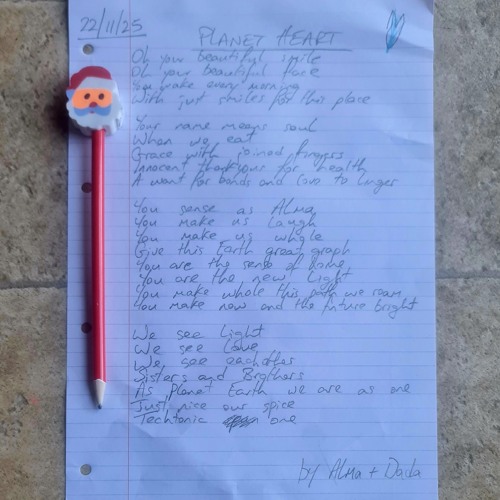 22/11/25
PLANET HEART
Oh your beautiful smile
Oh your beautiful face
You make every morning
With just smiles for this place
Your name means soul
When we eat
Grace with joined fingers
Innocent thankyous for health
A want for bonds and love to linger
You sense as Alma
You make us laugh
You make us whole
Give this Earth great graph
You are the sense of home
You are the new light
You make whole this path we roam
You make now and the future bright
We see Light
We see Love
We see eachother
Sisters and Brothers
As Planet Earth we are as one
Just nice our spice
Techtonic one
by Alma + Dada